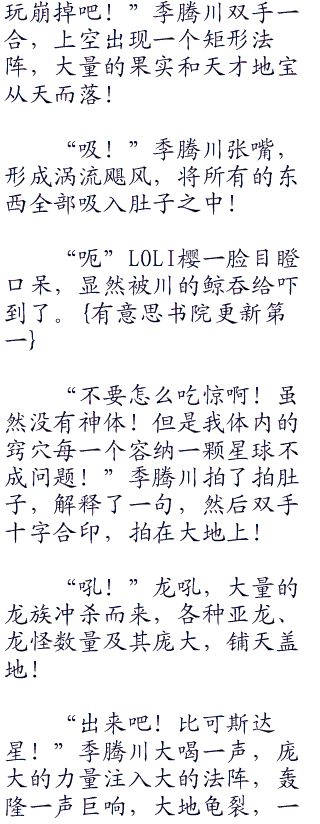 玩崩掉吧！”季腾川双手一
合，上空出现一个矩形法
阵，大量的果实和天才地宝
从天而落！
“吸！”季腾川张嘴，
形成涡流飓风，将所有的东
西全部吸入肚子之中！
“呃”LOLI樱一脸目瞪
口呆，显然被川的鲸吞给吓
到了。{有意思书院更新第
一}
“不要怎么吃惊啊！虽
然没有神体！但是我体内的
窍穴每一个容纳一颗星球不
成问题！”季腾川拍了拍肚
子，解释了一句，然后双手
十字合印，拍在大地上！
“吼！”龙吼，大量的
龙族冲杀而来，各种亚龙、
龙怪数量及其庞大，铺天盖
地！
“出来吧！比可斯达
星！”季腾川大喝一声，庞
大的力量注入大的法阵，轰
隆一声巨响，大地龟裂，一